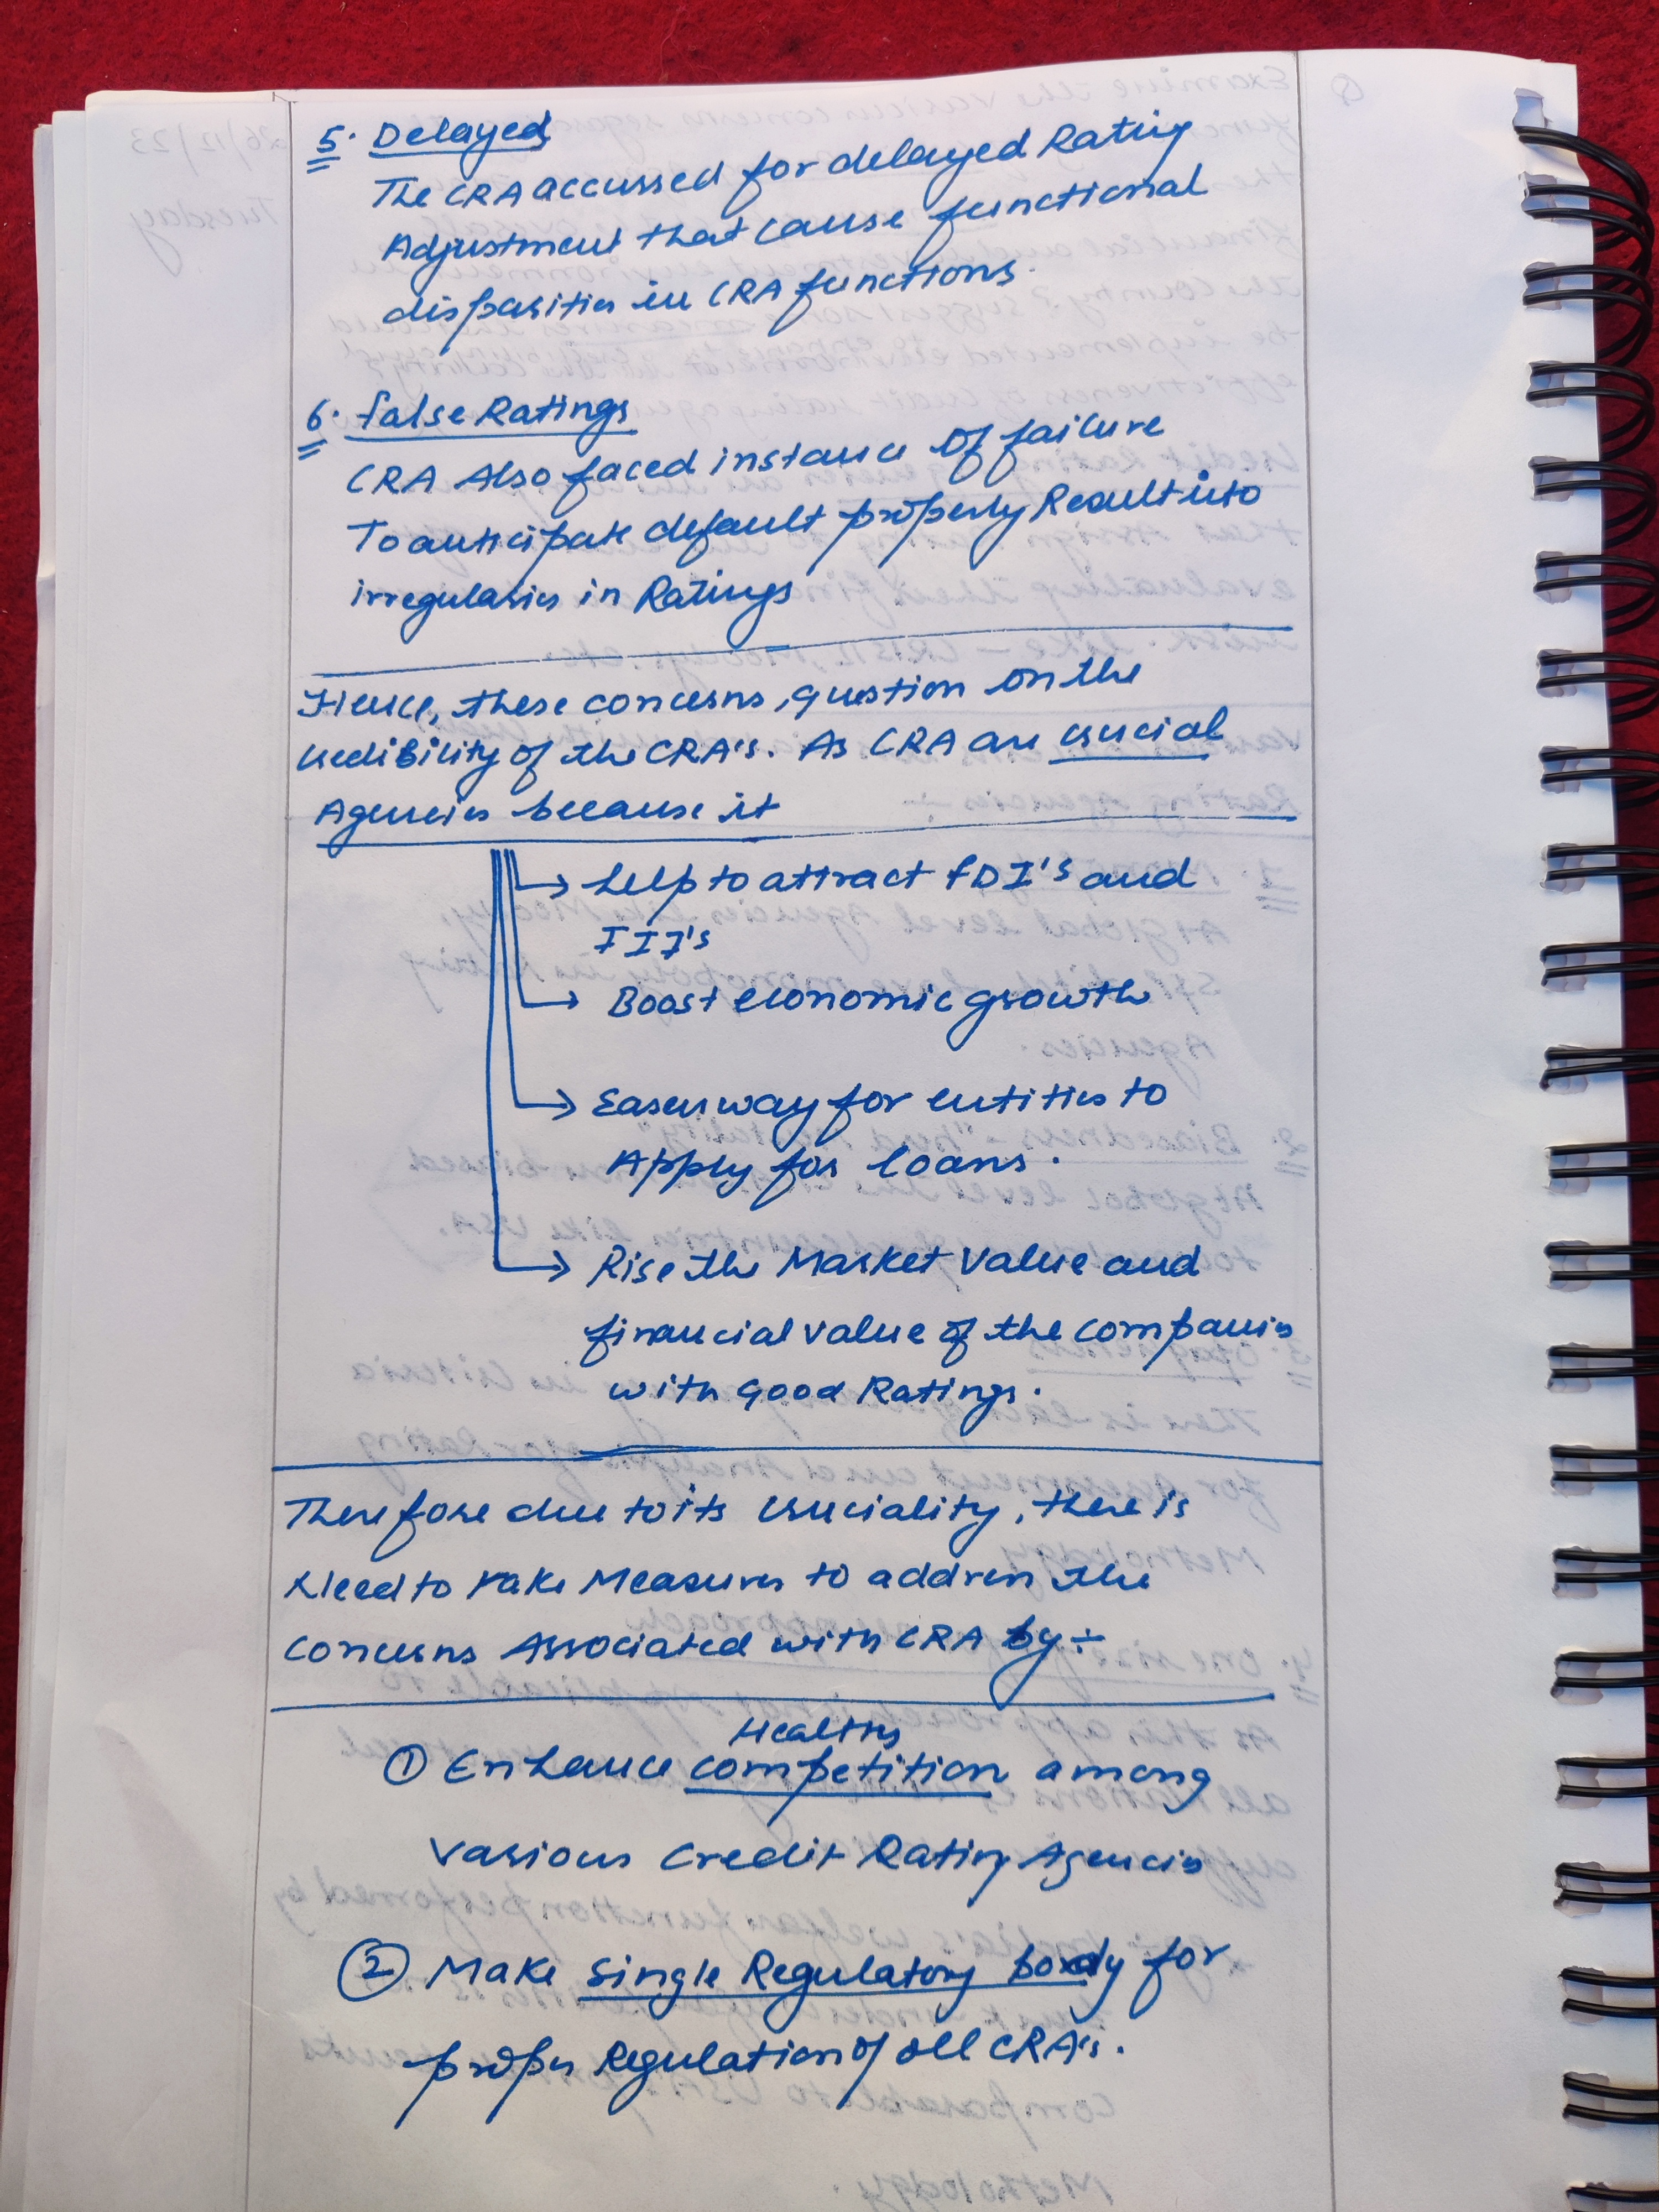 5. Delayed
The CRA accussed for delayed Rating
Adjustment that cause functional
disparities in CRA functions.
6. False Ratings
CRA Also faced instance of failure
To anticipate default properly Result into
irregularies in Ratings
Hence, these concerns, question on the
credibility of the CRA's. As CRA are crucial
Agencies because it
→ help to attract FDI's and
FII's
→ Boost economic growth
→ Easen way for entities to
Apply for loans.
→ Rise the Market Value and
financial value of the companies
with Good Ratings.
Therefore due to its cruciality, there is
Need to take Measures to address the
concerns Associated with CRA by÷
Healthy
① Enhance competition among
Various Credit Rating Agencies
② Make Single Regulatory body for
proper Regulation of all CRA's.